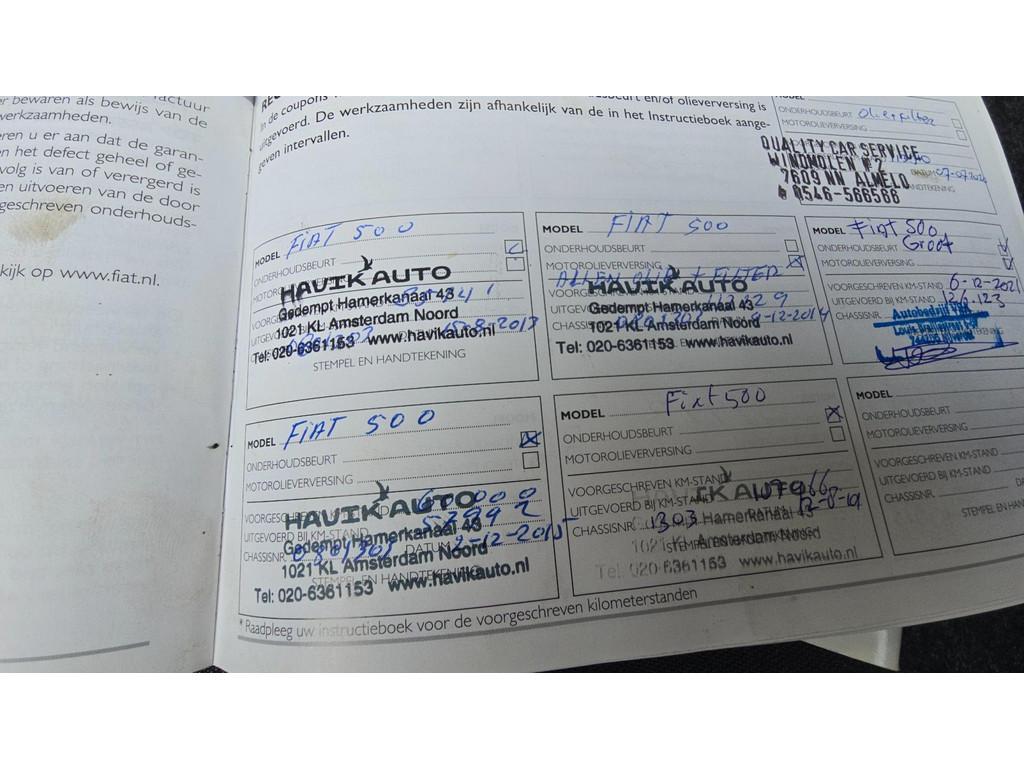 factuur
er bewaren als bewijs van de
werkzaamheden.
eren u er aan dat de garan-
en het defect geheel of ge-
volg is van of verergerd is
en uitvoeren van de door
geschreven onderhouds-
kijk op www.fiat.nl.
In de coupons
sbeurt en/of olieverversing is
uitgevoerd. De werkzaamheden zijn afhankelijk van de in het Instructieboek aange-
geven intervallen.
MODEL
ONDERHOUDSBEURT Oliefilter
MOTOROLIEVERVERSING
QUALITY CAR SERVICE
WINDMOLEN 72
7609 NN ALMELO
DATUM 07-07-2024
0546-566568
HANDTEKENING
MODEL FIAT 500
ONDERHOUDSBEURT
HAVIK AUTO
Gedempt Hamerkanaal 43
1021 KL Amsterdam Noord
Tel: 020-6361153 www.havikauto.nl
STEMPEL EN HANDTEKENING
MODEL FIAT 500
ONDERHOUDSBEURT
MOTOROLIEVERVERSING
ALLEEN OLIE + FILTER
HAVIK AUTO
Gedempt Hamerkanaal 43
1021 KL Amsterdam Noord
Tel: 020-6361153 www.havikauto.nl
MODEL Fiat 500
ONDERHOUDSBEURT Groot
MOTOROLIEVERVERSING
VOORGESCHREVEN KM-STAND 6-12-2021
UITGEVOERD BIJ KM-STAND
CHASSISNR.
Autobedrijf
MODEL FIAT 500
ONDERHOUDSBEURT
MOTOROLIEVERVERSING
VOORGESCHREVEN KM-STAND 60.000
HAVIK AUTO
UITGEVOERD BIJ KM-STAND
Gedempt Hamerkanaal 43
CHASSISNR. DATUM 2-12-2015
1021 KL Amsterdam Noord
STEMPEL EN HANDTEKENING
Tel: 020-6361153 www.havikauto.nl
MODEL Fiat 500
ONDERHOUDSBEURT
MOTOROLIEVERVERSING
VOORGESCHREVEN KM-STAND
HAVIK AUTO
UITGEVOERD BIJ KM-STAND 107966
CHASSISNR. 1303 DATUM 12-8-19
Hamerkanaal 43
1021 KL Amsterdam Noord
Tel: 020-6361153 www.havikauto.nl
MODEL
ONDERHOUDSBEURT
MOTOROLIEVERVERSING
VOORGESCHREVEN KM-STAND
UITGEVOERD BIJ KM-STAND
CHASSISNR.
STEMPEL EN HAND
* Raadpleeg uw instructieboek voor de voorgeschreven kilometerstanden